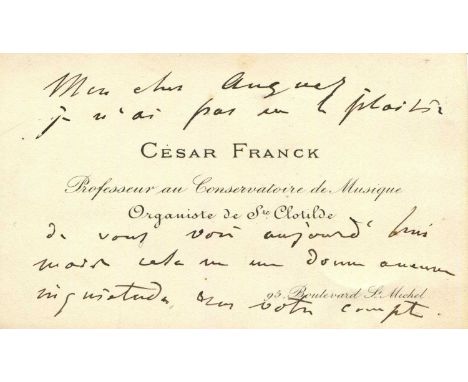 Mon cher Auguez
je n'ai pas eu le plaisir
CÉSAR FRANCK
Professeur au Conservatoire de Musique
Organiste de Ste Clotilde
de vous voir aujourd'hui
mais cela ne me donne aucune
inquietude sur votre compte.
95, Boulevard St Michel